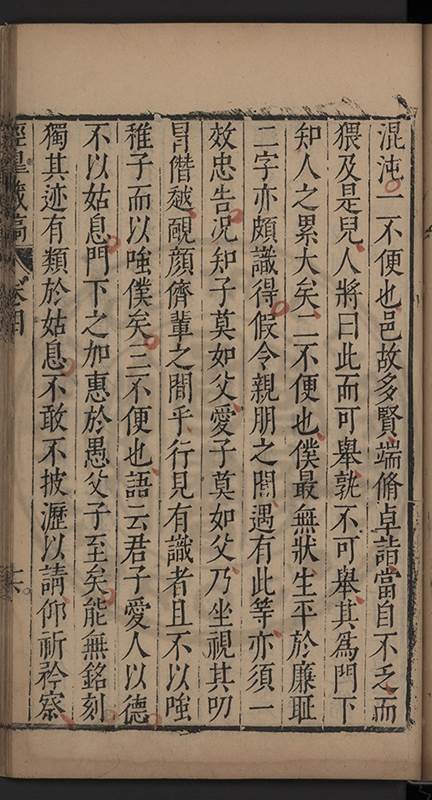 混沌一不便也邑故多賢端脩卓詣當自不乏而
猥及是兒人將曰此而可舉孰不可舉其為門下
知人之累大矣二不便也僕最無狀生平於廉耻
二字亦頗識得假令親朋之間遇有此等亦須一
效忠告况知子莫如父愛子莫如父乃坐視其叨
冒僭越靦顔儕輩之間乎行見有識者且不以嗤
稚子而以嗤僕矣三不便也語云君子愛人以德
不以姑息門下之加惠於愚父子至矣能無銘刻
獨其迹有類於姑息不敢不披瀝以請仰祈矜察
藏稿